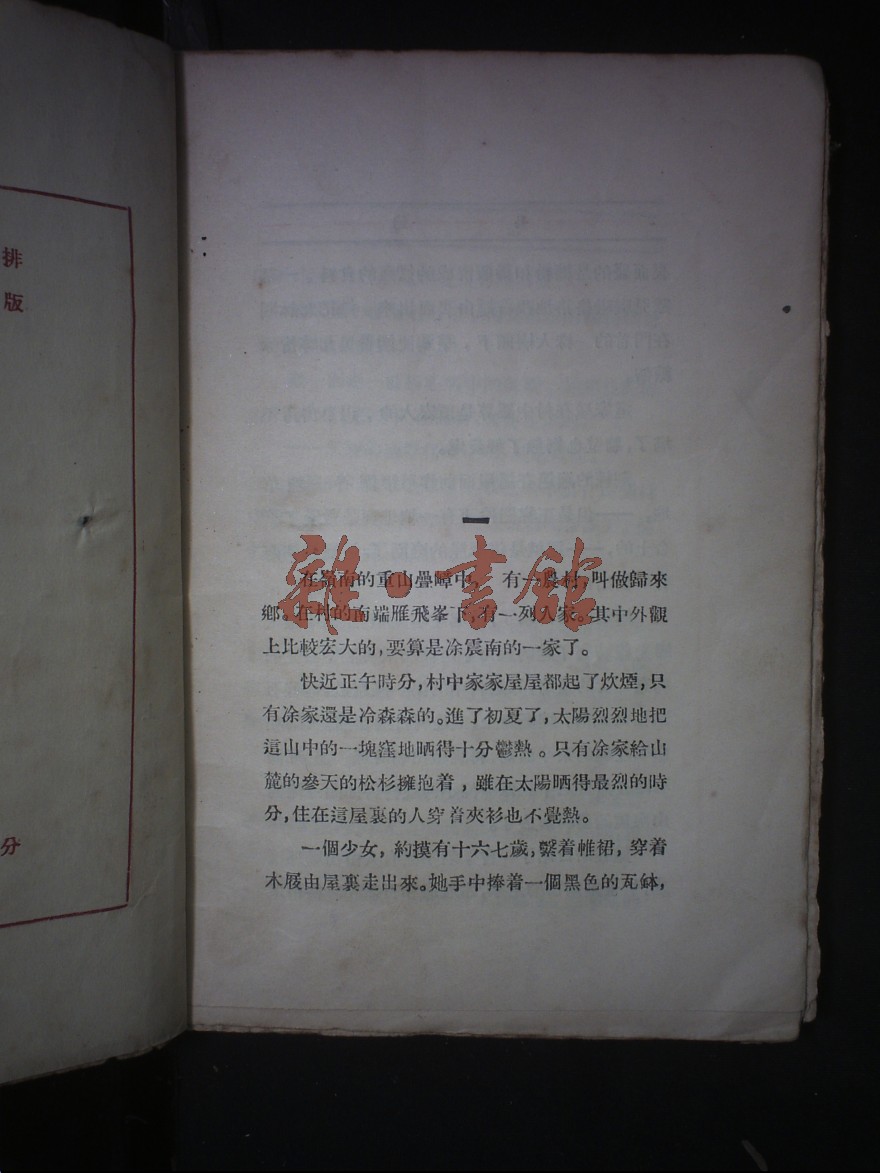 排
版
分
一
雜·書館
在嶺南的重山疊嶂中　有一農村，叫做歸來
鄉。在村的南端雁飛峯下，有一列人家。其中外觀
上比較宏大的，要算是涂震南的一家了。
快近正午時分，村中家家屋屋都起了炊煙，只
有凃家還是冷森森的。進了初夏了，太陽烈烈地把
這山中的一塊窪地晒得十分鬱熱。只有凃家給山
麓的參天的松杉擁抱着，雖在太陽晒得最烈的時
分，住在這屋裏的人穿着夾衫也不覺熱。
一個少女，約摸有十六七歲，繫着帷裙，穿着
木屐由屋裏走出來。她手中捧着一個黑色的瓦缽，